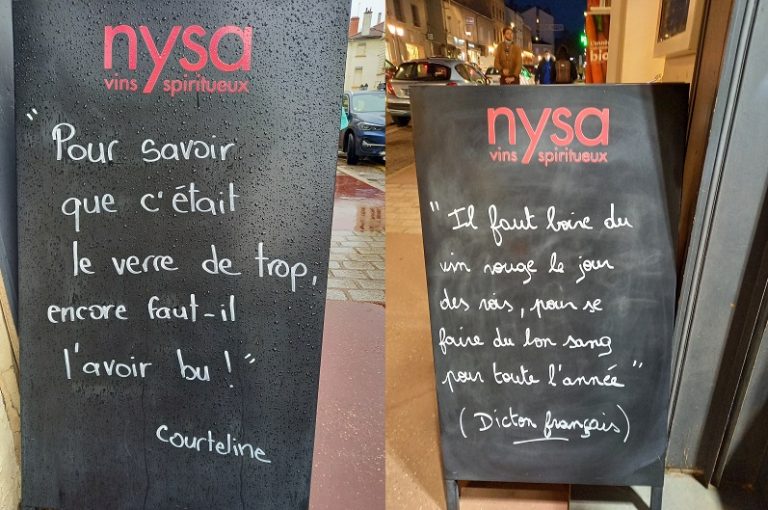 nysa
vins spiritueux
"Pour savoir
que c'était
le verre de trop,
encore faut-il
l'avoir bu !"
Courteline
nysa
vins spiritueux
"Il faut boire du
vin rouge le jour
des rois, pour se
faire du bon sang
pour toute l'année"
(Dicton français)
bio